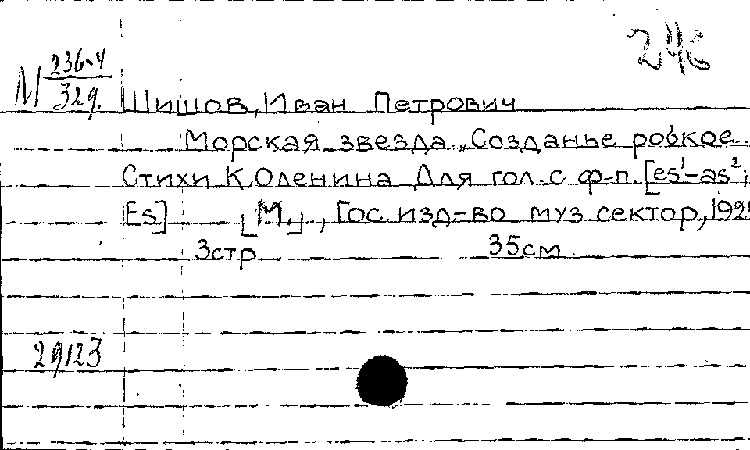 246
М 236-4
329.
Шишов, Иван Петрович
Морская звезда. „Созданье робкое..
Стихи К. Оленина Для гол. с ф-п. [es¹-as²;
Es] [М.], Гос. изд-во муз сектор,
3стр 35см.
29123